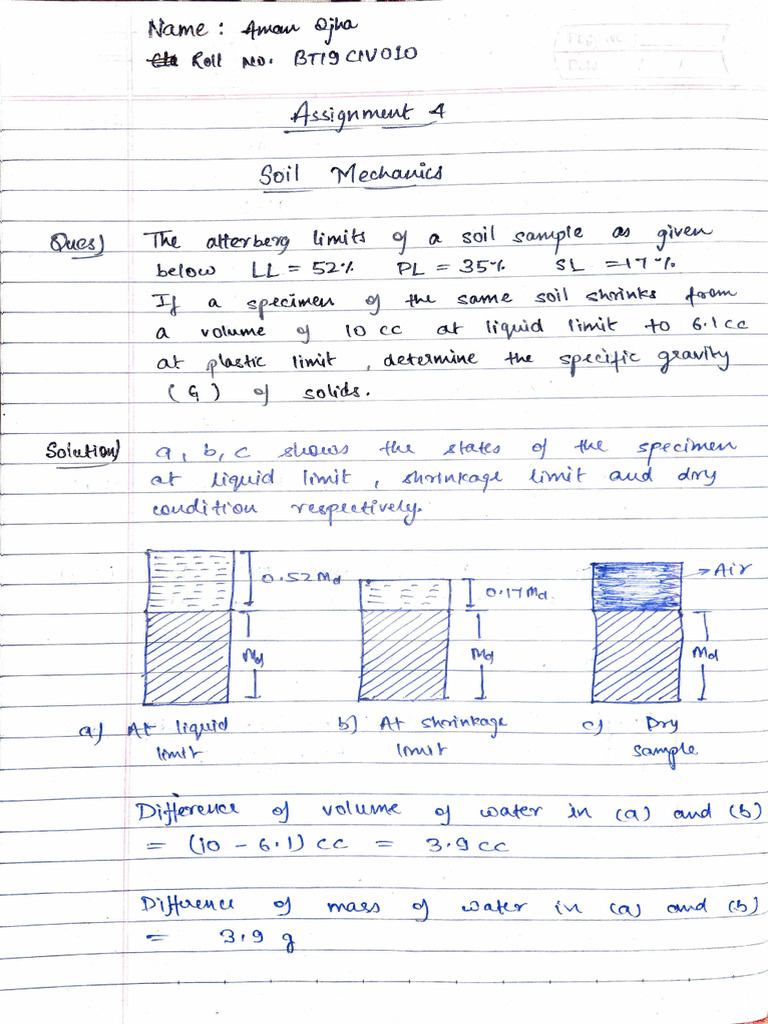 Name : Aman Ojha
Roll No. BT19CIV010
Page No.
Date / /
Assignment 4
Soil Mechanics
Ques) The atterberg limits of a soil sample as given
below LL = 52% PL = 35% SL = 17%.
If a specimen of the same soil shrinks from
a volume of 10 cc at liquid limit to 6.1 cc
at plastic limit, determine the specific gravity
(G) of solids.
Solution) a, b, c shows the states of the specimen
at liquid limit, shrinkage limit and dry
condition respectively.
0.52Md 0.17Md → Air
Md Md Md
a) At liquid limit b) At shrinkage limit c) Dry sample
Difference of volume of water in (a) and (b)
= (10 - 6.1) cc = 3.9 cc
Difference of mass of water in (a) and (b)
= 3.9 g